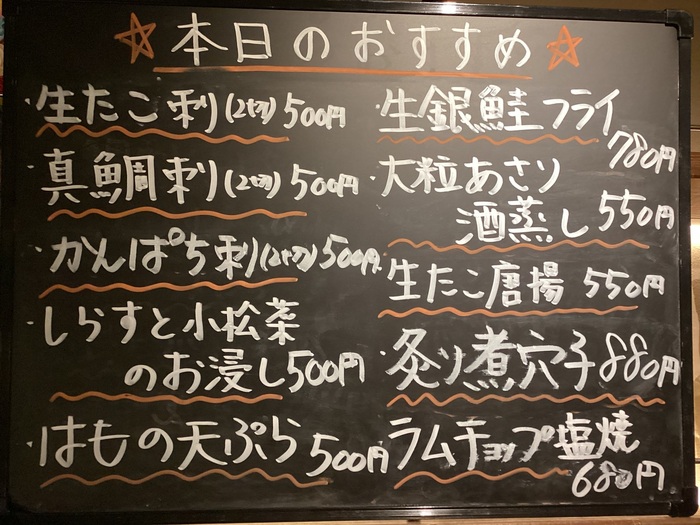 ☆本日のおすすめ☆
生たこ刺(2切)500円
真鯛刺(2切)500円
かんぱち刺(2切)500円
しらすと小松菜
のお浸し500円
はもの天ぷら500円
生銀鮭フライ
780円
大粒あさり
酒蒸し550円
生たこ唐揚550円
炙り煮穴子880円
ラムチョップ塩焼
680円